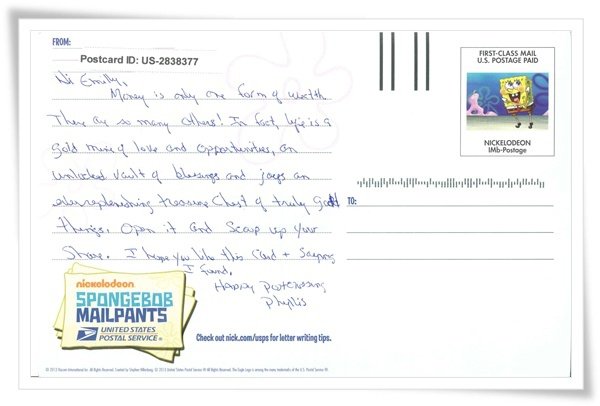 FROM:
Postcard ID: US-2838377
Hi Emily,
Money is only one form of wealth.
There are so many others! In fact, life is a
gold mine of love and opportunities, an
unlocked vault of blessings and joys an
ever replenishing treasure chest of truly good
things. Open it and scoop up your
share. I hope you like this card + saying
I found.
Happy Postcrossing
Phyllis
nickelodeon
SPONGEBOB
MAILPANTS
UNITED STATES
POSTAL SERVICE®
Check out nick.com/usps for letter writing tips.
FIRST-CLASS MAIL
U.S. POSTAGE PAID
NICKELODEON
IMb-Postage
TO: